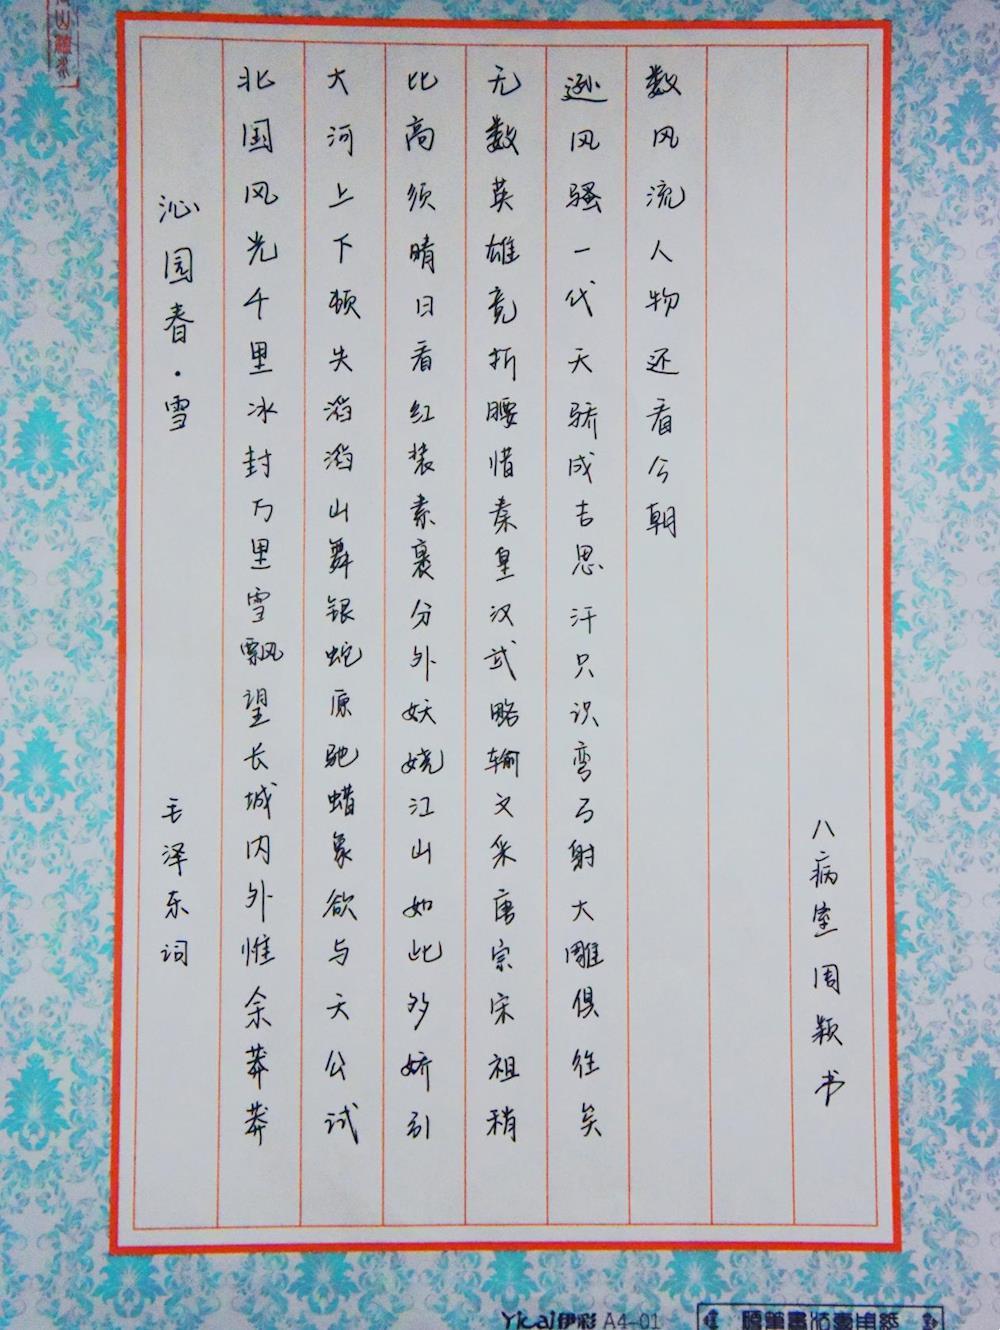 沁园春·雪 毛泽东词
北国风光千里冰封万里雪飘望长城内外惟余莽莽
大河上下顿失滔滔山舞银蛇原驰蜡象欲与天公试
比高须晴日看红装素裹分外妖娆江山如此多娇引
无数英雄竞折腰惜秦皇汉武略输文采唐宗宋祖稍
逊风骚一代天骄成吉思汗只识弯弓射大雕俱往矣
数风流人物还看今朝
八病室周颖书
Yicai伊彩 A4-01